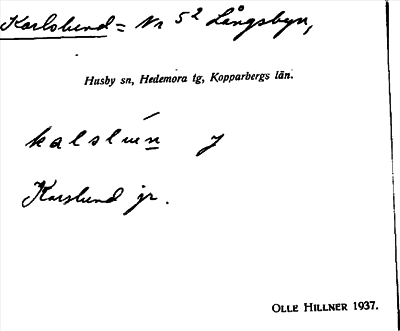 Karlslund = Nr 52 Långsbyn,
Husby sn, Hedemora tg, Kopparbergs län.
kalslun J
Karslund jr.
OLLE HILLNER 1937.